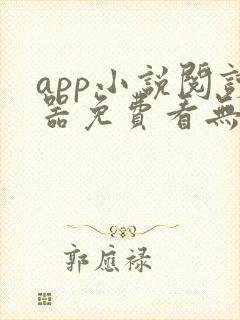 app小説閱讀
器免費看無
郭應禄